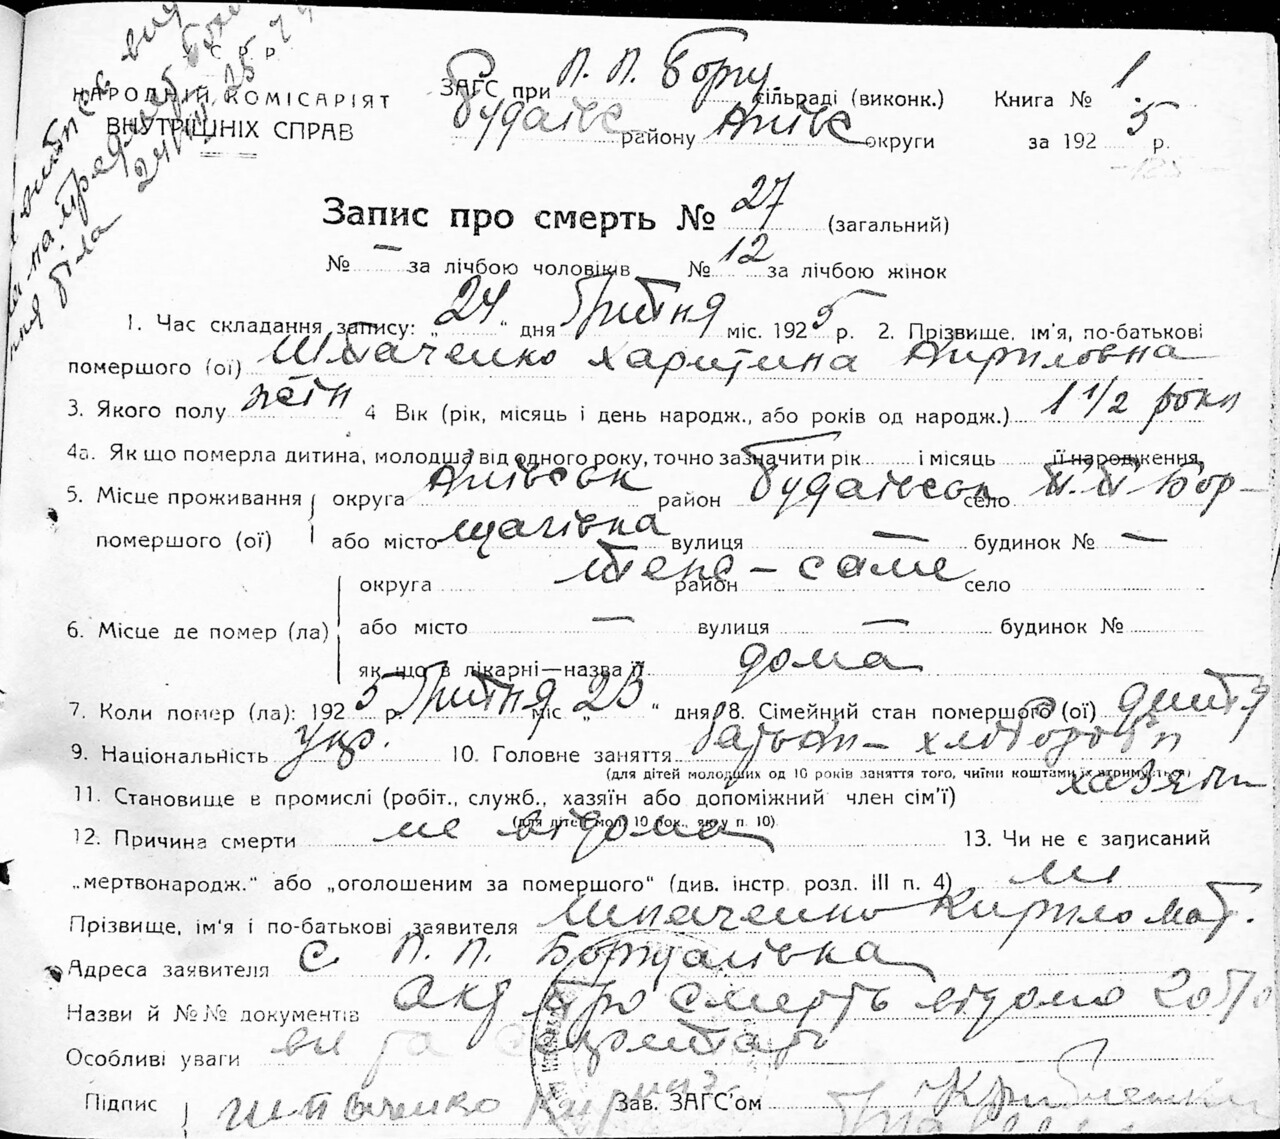 С Р Р
НАРОДНІЙ КОМІСАРІЯТ
ВНУТРІШНІХ СПРАВ
ЗАГС при П. П. Борщ сільраді (виконк.) Книга № 1
Будаївс району Київс округи за 192 5 р.
Запис про смерть № 27 (загальний)
№ — за лічбою чоловіків № 12 за лічбою жінок
1. Час складання запису: „ 24 “ дня міс. 192 5 р. 2. Прізвище, ім'я, по-батькові
помершого (ої) Шпаченко Харитина Кириловна
3. Якого полу жін 4 Вік (рік, місяць і день народж., або років од народж.) 1 1/2 роки
4а. Як що померла дитина, молодша від одного року, точно зазначити рік і місяць її народження
5. Місце проживання округа Київськ район Будаївськ село П. П Бор-
помершого (ої) або місто щагівка вулиця — будинок № —
округа район село
теж - саме
6. Місце де помер (ла) або місто — вулиця — будинок №
як що в лікарні—назва її дома
7. Коли помер (ла): 192 5 р. міс „ 23 “ дня 8. Сімейний стан помершого (ої) дитя
9. Національність Укр. 10. Головне заняття батьки - хлібороби
(для дітей молодших од 10 років заняття того, чиїми коштами їх втримується)
11. Становище в промислі (робіт., служб., хазяїн або допоміжний член сім'ї) хазяїн
(для дітей мол. 10 рок., як у п. 10)
12. Причина смерти не відома 13. Чи не є записаний
„мертвонародж.“ або „оголошеним за помершого“ (див. інстр. розд. III п. 4) ні
Прізвище, ім'я і по-батькові заявителя Шпаченко Кирило Мат.
Адреса заявителя с. П. П. Борщагівка
Назви й №№ документів Акд про смерть
Особливі уваги
Підпис Шпаченко Зав. ЗАГС'ом